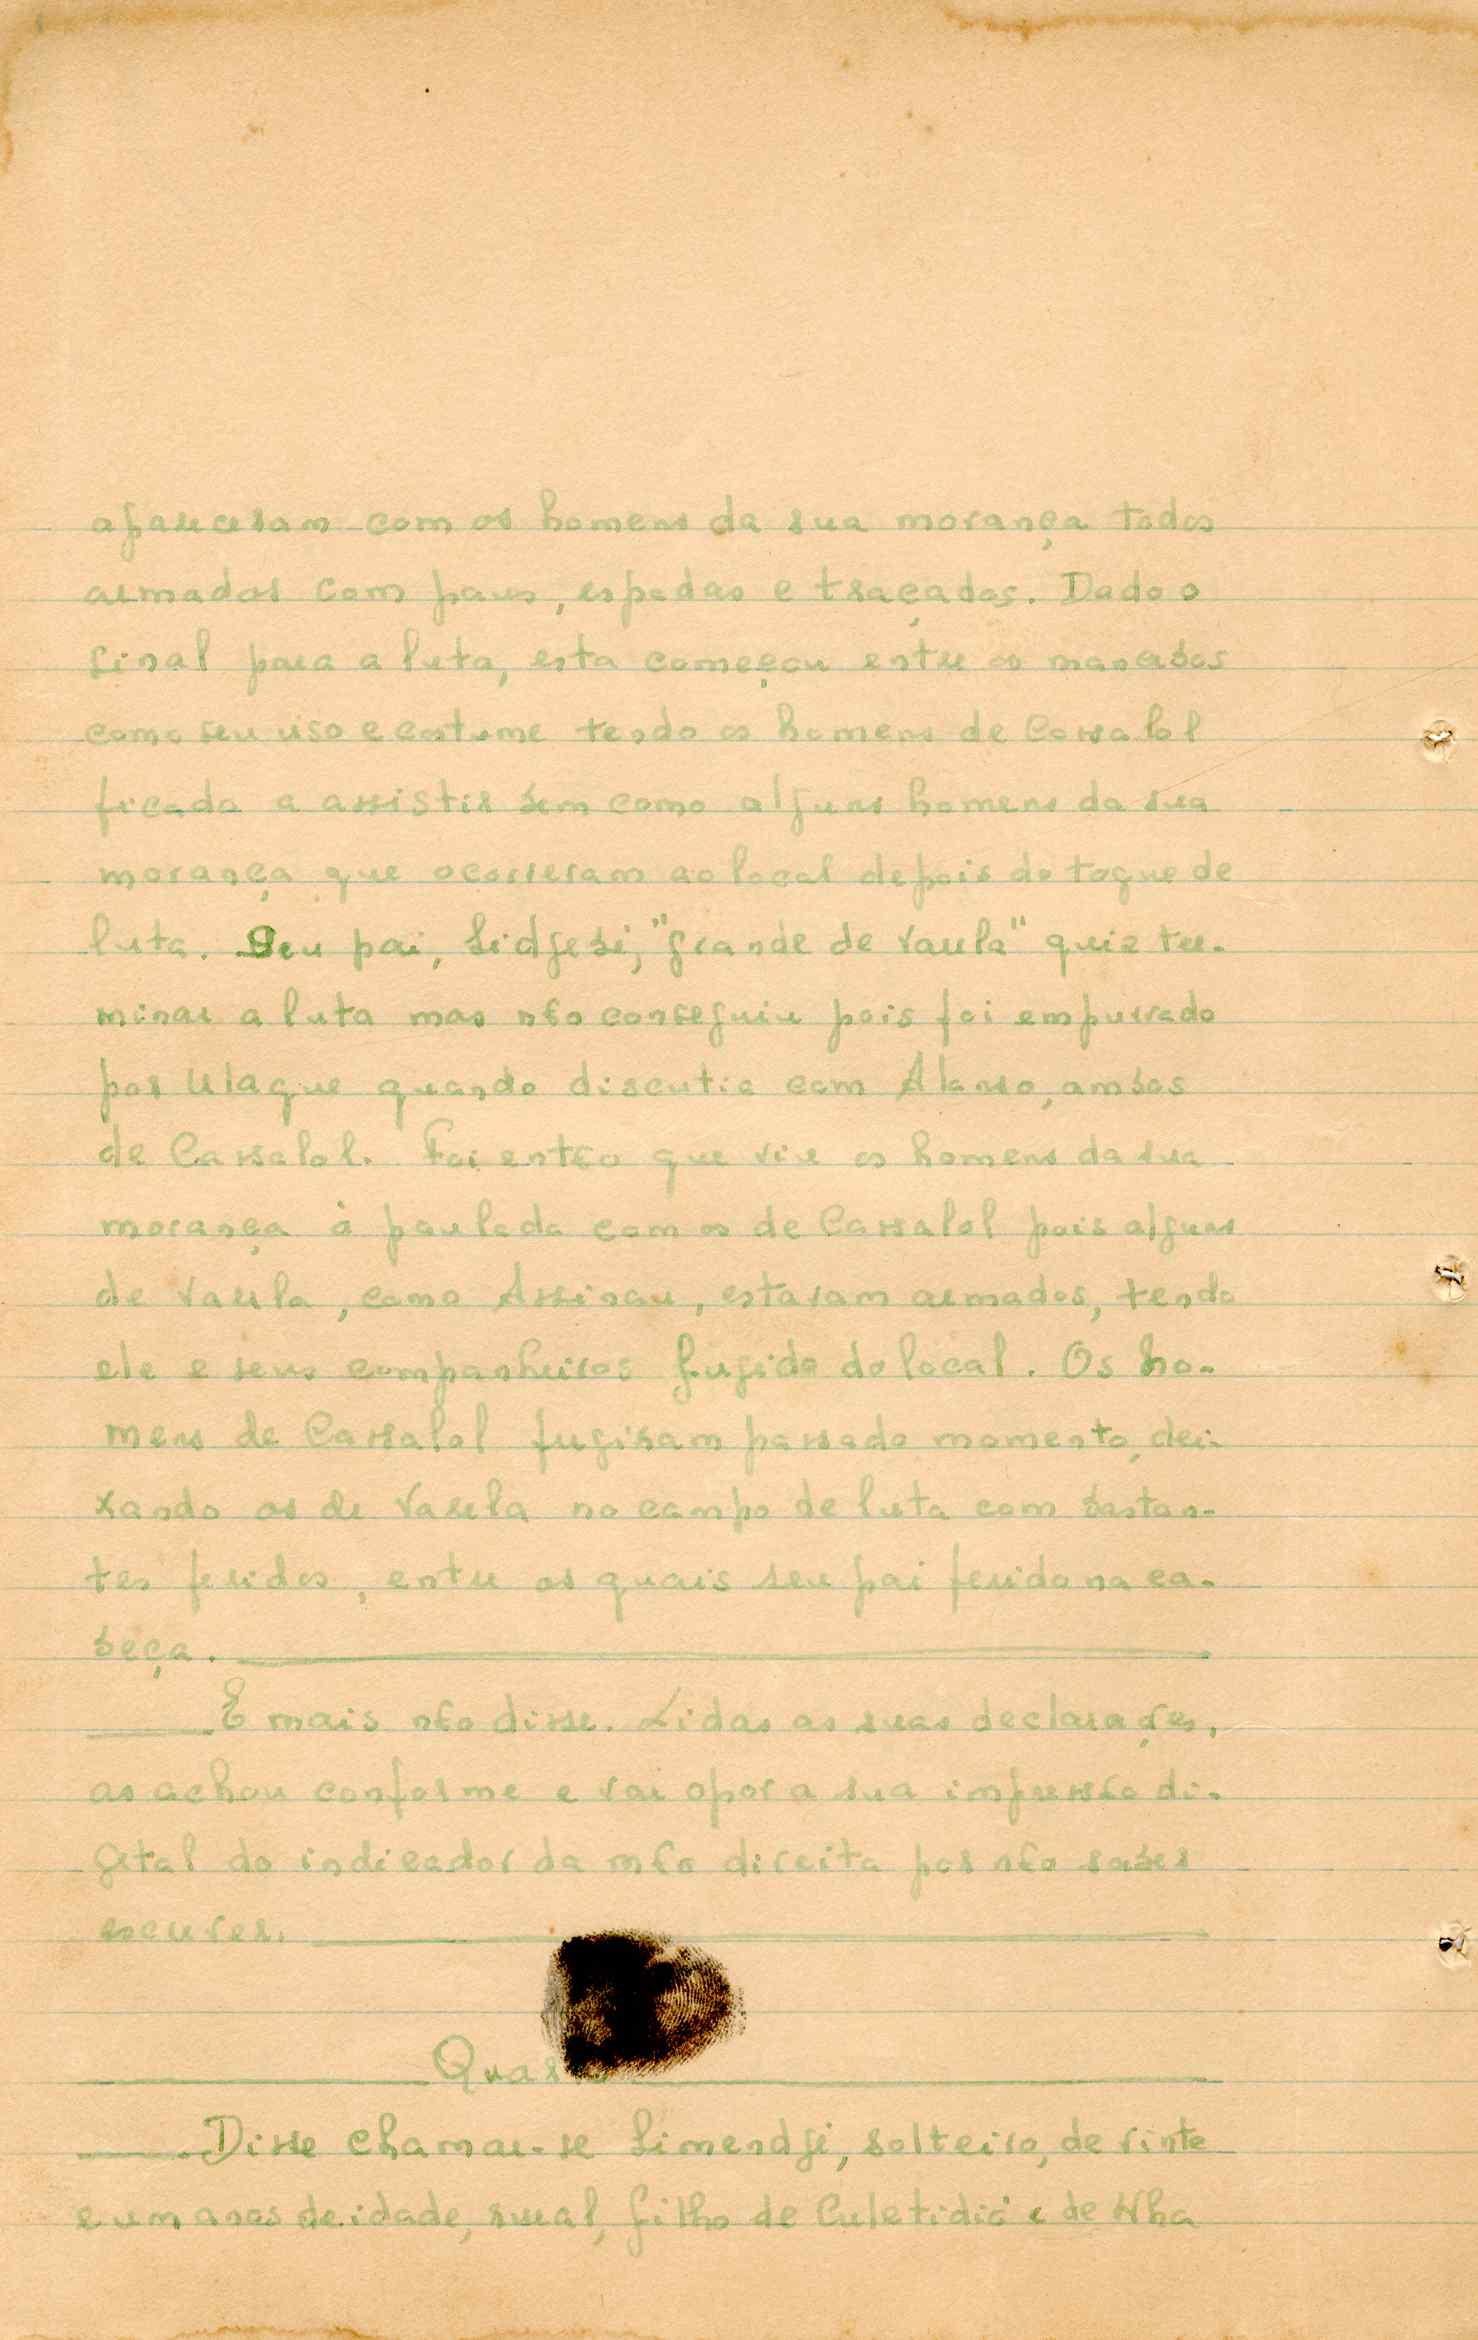 apareceram com os homens da sua morança todos
armados com paus, espadas e traçados. Dado o
sinal para a luta, esta começou entre os mancebos
como seu uso e costume tendo os homens de Cassalol
ficado a assistir bem como alguns homens da sua
morança que ocorreram ao local depois do toque de
luta. Seu pai, Sidjebi, "grande de Varela" quiz ter-
minar a luta mas não conseguiu pois foi empurrado
por Ulaque quando discutia com Alanso, ambos
de Cassalol. Foi então que viu os homens da sua
morança à paulada com os de Cassalol pois alguns
de Varela, como Assinau, estavam armados, tendo
ele e seus companheiros fugido do local. Os ho-
mens de Cassalol fugiram passado momento, dei-
xando os de Varela no campo de luta com bastan-
tes feridos, entre os quais seu pai ferido na ca-
beça.
E mais não disse. Lidas as suas declarações,
as achou conforme e vai opor a sua impressão di-
gital do indicador da mão direita por não saber
escrever.
Disse chamar-se Simendji, solteiro, de vinte
e um anos de idade, rural, filho de Culetidió e de Nha